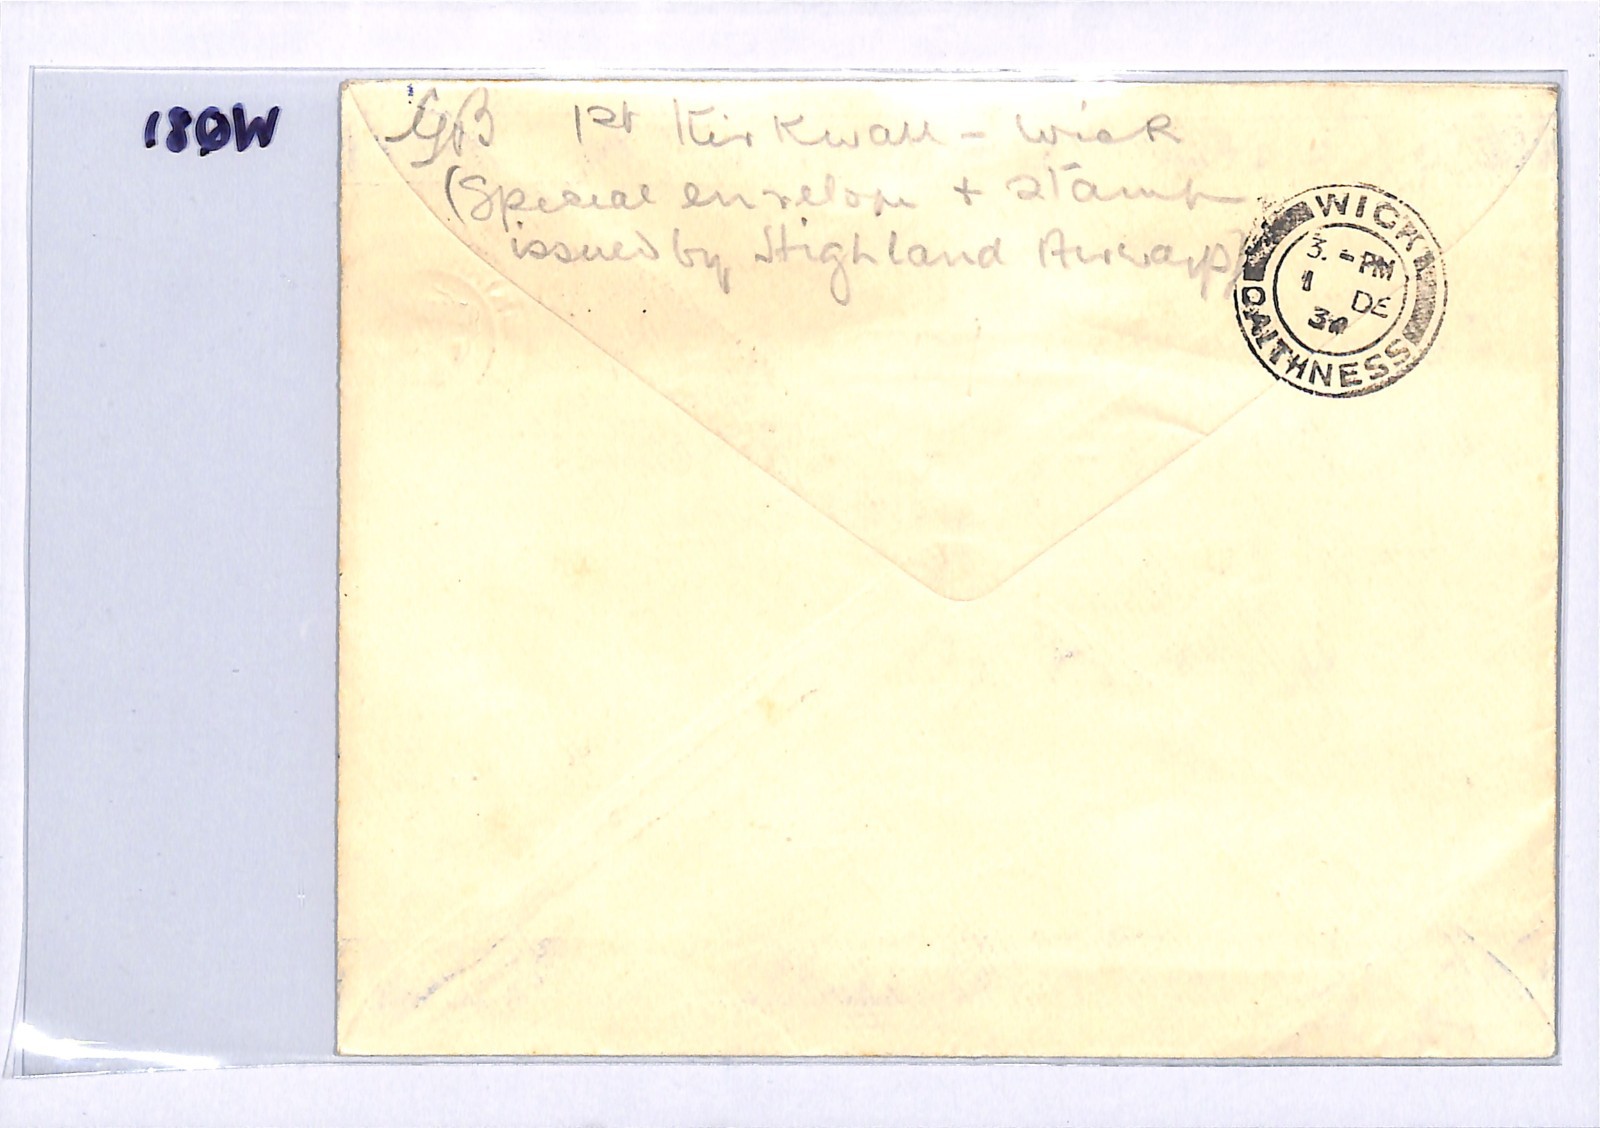 180W
GB 1st Kirkwall - Wick
(Special envelope + stamp
issued by Highland Airways)
WICK
3.-PM
1 DE
34
CAITHNESS